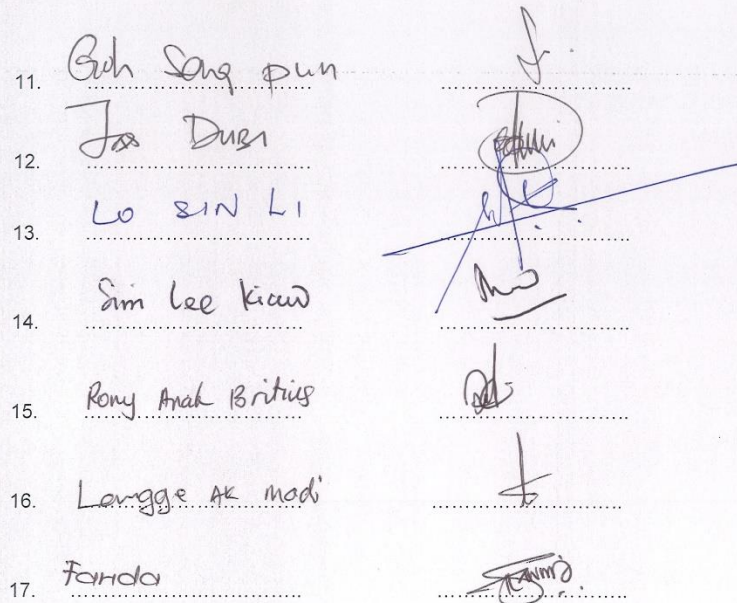 11. Goh Song pun
12 Jos Dubi
13. LO SIN LI
14. Sim Lee Kiaw
15. Rony Anak Britius
16. Langge AK madi
17. Farida